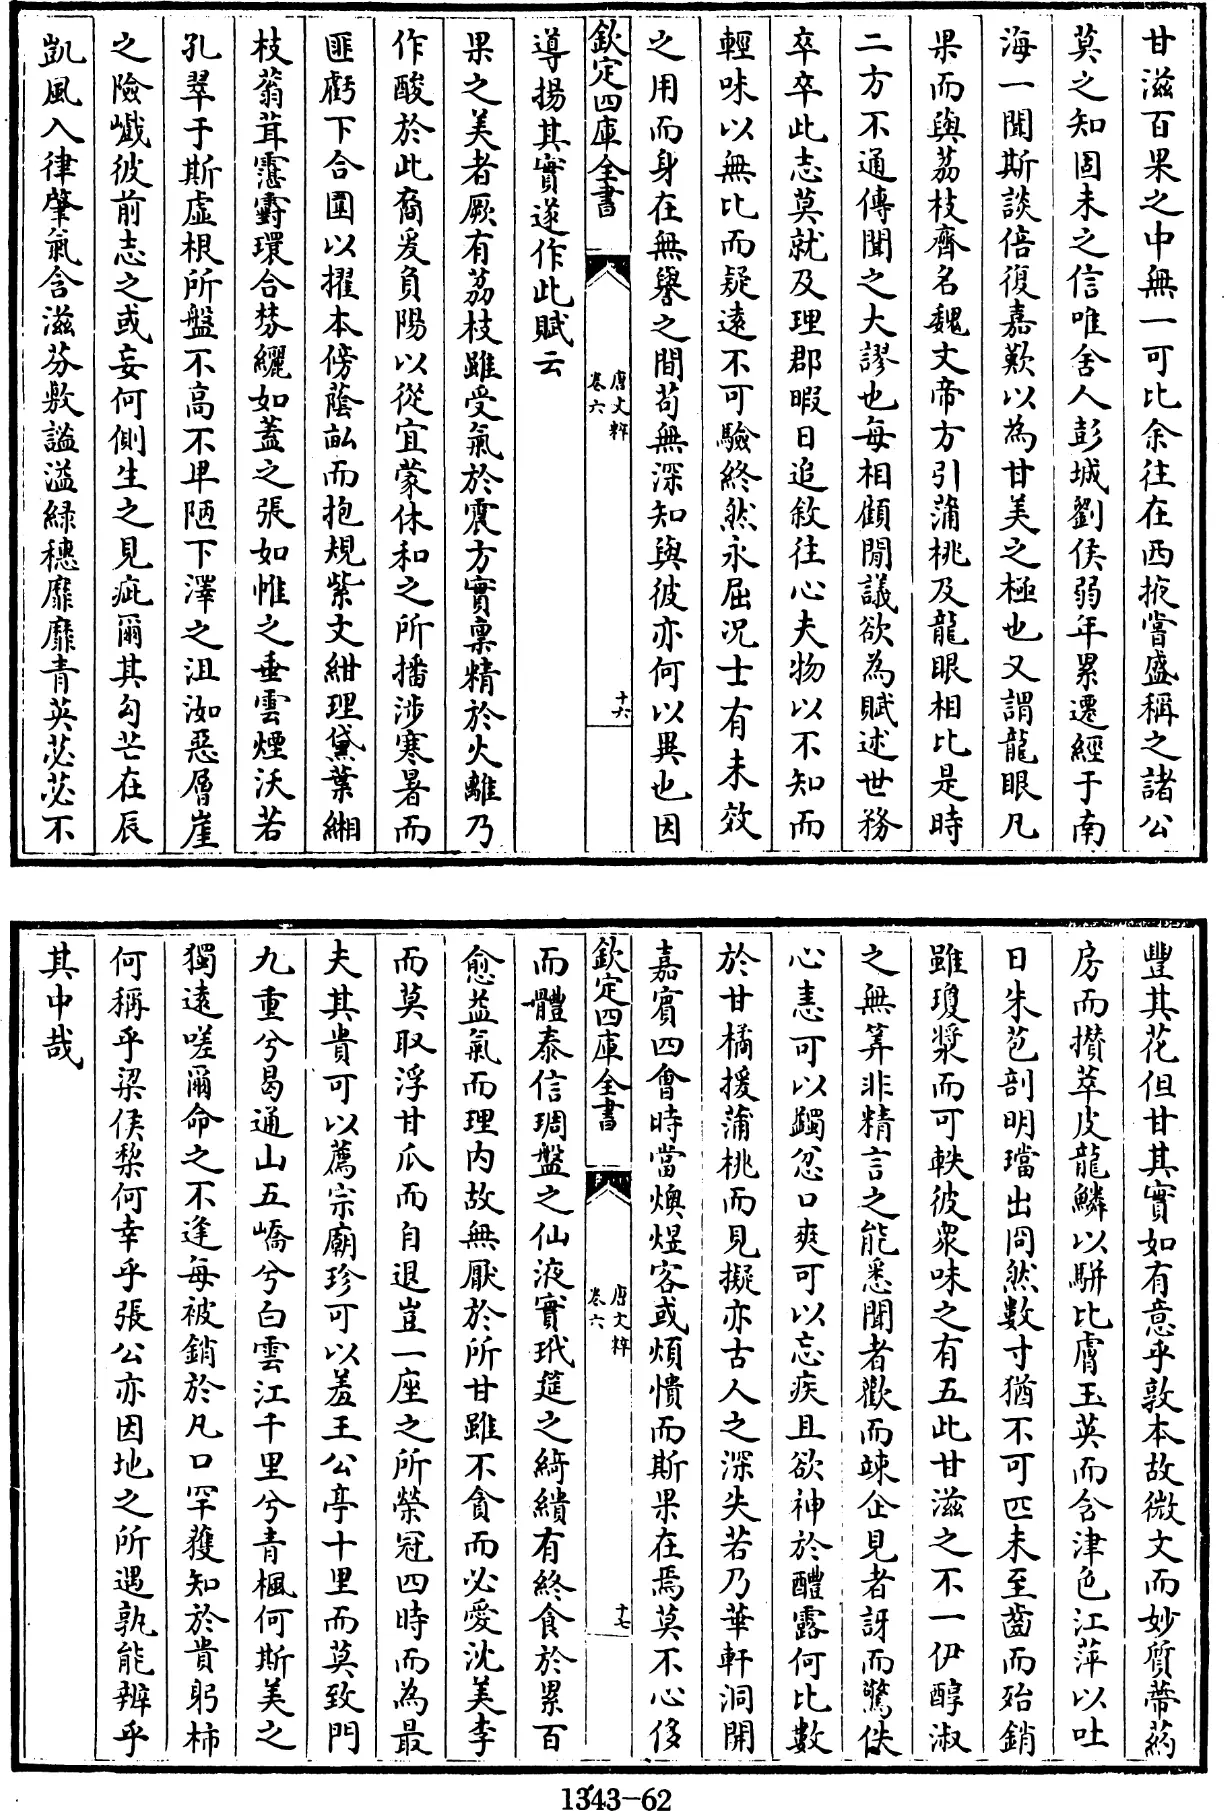 甘滋百果之中無一可比余往在西掖嘗盛稱之諸公
莫之知固未之信唯舍人彭城劉侯弱年累遷經于南
海一聞斯談倍復嘉歎以為甘美之極也又謂龍眼凡
果而與荔枝齊名魏文帝方引蒲桃及龍眼相比是時
二方不通傳聞之大謬也每相顧閒議欲為賦述世務
卒卒此志莫就及理郡暇日追敘往心夫物以不知而
輕味以無比而疑遠不可驗終然永屈況士有未效
之用而身在無譽之間苟無深知與彼亦何以異也因
欽定四庫全書
唐文粹
卷六
十六
導揚其實遂作此賦云
果之美者厥有荔枝雖受氣於震方實稟精於火離乃
作酸於此裔爰負陽以從宜蒙休和之所播涉寒暑而
匪虧下合圍以擢本傍蔭畝而抱規紫文紺理黛葉緗
枝蓊茸霮䨴環合棼纚如蓋之張如帷之垂雲煙沃若
孔翠于斯虛根所盤不高不卑陋下澤之沮洳惡層崖
之險巇彼前志之或妄何側生之見疵爾其勾芒在辰
凱風入律肇氣含滋芬敷謐溢綠穗靡靡青英苾苾不
豐其花但甘其實如有意乎敦本故微文而妙質蔕葯
房而攢萃皮龍鱗以駢比膚玉英而含津色江萍以吐
日朱苞剖明璫出冏然數寸猶不可匹未至齒而殆銷
雖瓊漿而可軼彼衆味之有五此甘滋之不一伊醇淑
之無筭非精言之能悉聞者歡而竦企見者訝而驚佚
心恚可以蠲忿口爽可以忘疾且欲神於醴露何比數
於甘橘援蒲桃而見擬亦古人之深失若乃華軒洞開
嘉賓四會時當燠煜客或煩憒而斯果在焉莫不心侈
欽定四庫全書
唐文粹
卷六
十七
而體泰信琱盤之仙液實玳筵之綺繢有終食於累百
愈益氣而理內故無厭於所甘雖不貪而必愛沈美李
而莫取浮甘瓜而自退豈一座之所榮冠四時而為最
夫其貴可以薦宗廟珍可以羞王公亭十里而莫致門
九重兮曷通山五嶠兮白雲江千里兮青楓何斯美之
獨遠嗟爾命之不逢每被銷於凡口罕獲知於貴躬柿
何稱乎梁侯棃何幸乎張公亦因地之所遇孰能辨乎
其中哉
1343-62